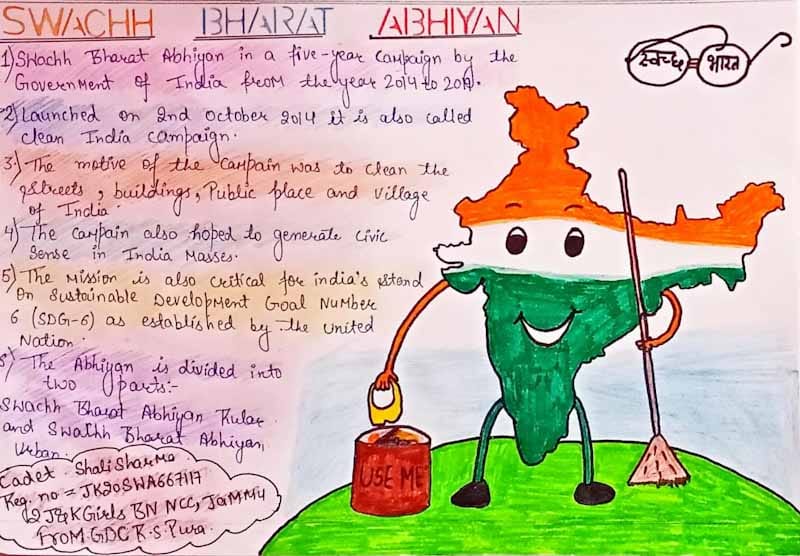 SWACHH BHARAT ABHIYAN
स्वच्छ भारत
1) Swachh Bharat Abhiyan in a five-year campaign by the
Government of India from the year 2014 to 2019.
2) Launched on 2nd October 2014 it is also called
clean India campaign.
3) The motive of the campain was to clean the
streets, buildings, Public place and village
of India.
4) The campain also hoped to generate civic
sense in India Masses.
5) The Mission is also critical for india's stand
on sustainable Development Goal Number
6 (SDG-6) as established by the united
Nation.
6) The Abhiyan is divided into
two parts:-
Swachh Bharat Abhiyan Rular
and Swachh Bharat Abhiyan,
Urban.
Cadet. Shali Sharma
Reg. no = JK20SWA667117
J&K Girls BN NCC, JAMMU
From GDC R.S Pura.
USE ME